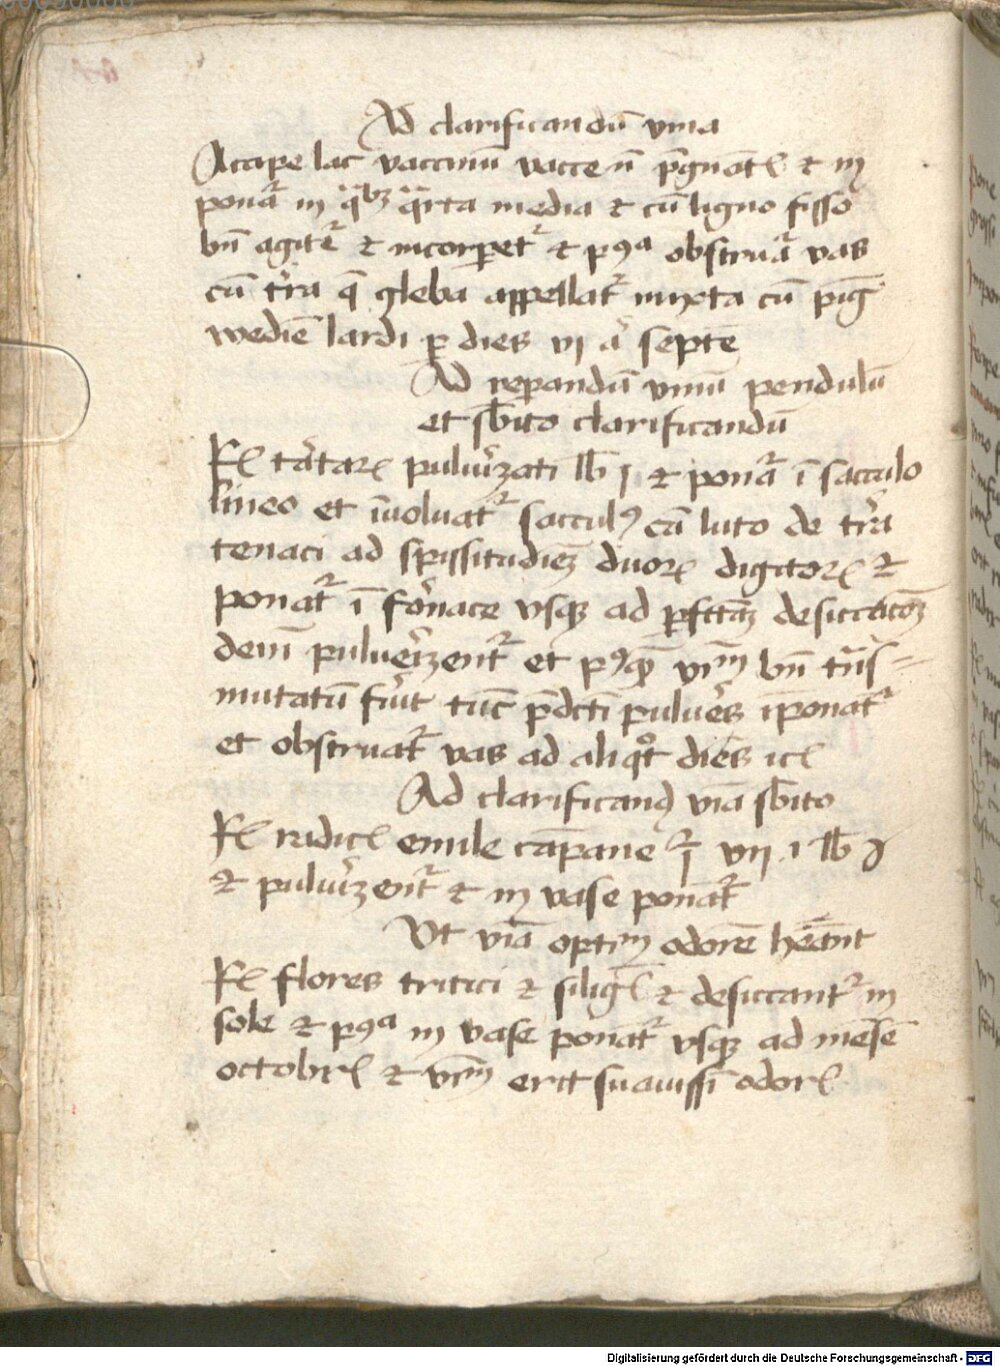 Ad clarificandū vina
Accipe lac vaccinū vacce nō p̄gnātꝭ ⁊ in
ponat᷑ in q̄libꝫ q̄rta media ⁊ cū ligno fisso
bn̄ agitet᷑ ⁊ incorꝑet᷑ ⁊ pꝰea obstruat᷑ vas
cū tr̄ra q̄ gleba appellat᷑ mixta cū pīg
wedīe lardi ꝑ dies vj a᷑ septē
Ad reparandū vinū pendulū
et sb̄ito clarificandū
Rꝭ tartarꝭ puluīzati lb̄ j ⁊ ponat᷑ ī sacculo
lineo et īuoluat᷑ sacculꝰ cū luto de tr̄ra
tenaci ad spissitudīeꝫ duorꝝ digitorꝝ ⁊
ponat᷑ ī fornace vsqꝫ ad ꝑfctāꝫ desiccacōeꝫ
dein̄ puluerizent᷑ et pꝰqꝫ vinū bn̄ trās=
mutatū fuīt tūc p̄dcti pulueres īponat᷑
et obstruat᷑ vas ad aliqt̊ dies ⁊cꝭ
Ad clarificandū vina sb̄ito
Rꝭ radicꝭ enule cāpane vij lb̄
⁊ puluīzent᷑ ⁊ in vase ponat᷑
Vt vina optimū odorē hēant
Rꝭ flores tritici ⁊ siligꝭ ⁊ desiccant᷑ in
sole ⁊ pꝰea in vase ponat᷑ vsqꝫ ad mēsē
octobrꝭ ⁊ vinū erit suauissī odorꝭ
Digitalisierung gefördert durch die Deutsche Forschungsgemeinschaft - DFG